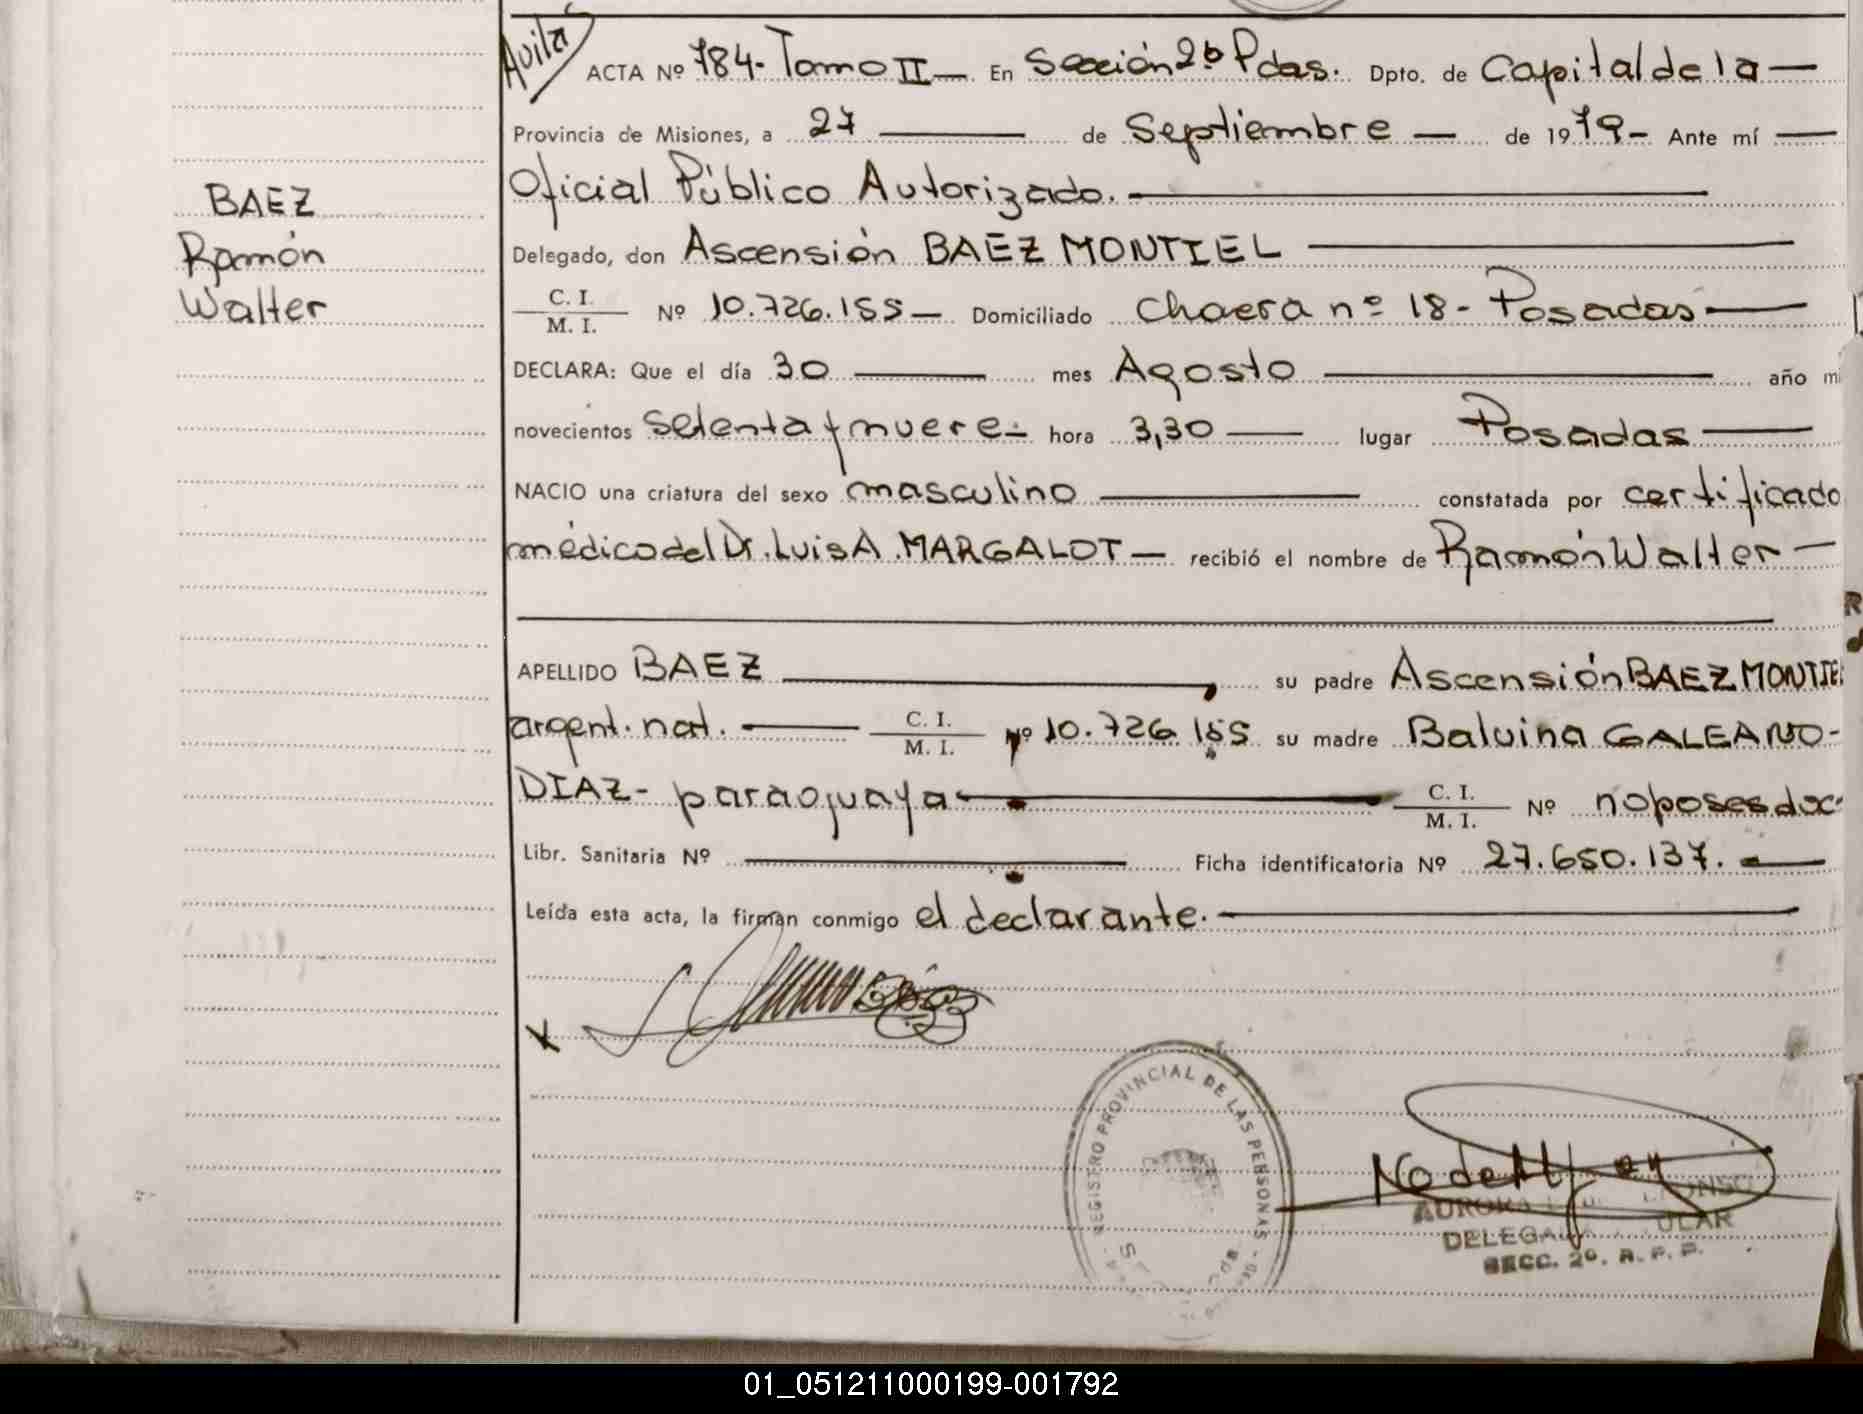 Avila
ACTA Nº 784- Tomo II — En Sección 2ª Pdas. Dpto. de Capital de la —
Provincia de Misiones, a 27 — de Septiembre — de 1979- Ante mí —
Oficial Público Autorizado. —
BAEZ
Ramón
Walter
Delegado, don Ascensión BAEZ MONTIEL —
C. I.
M. I. Nº 10.726.155 — Domiciliado Chacra nº 18 - Posadas —
DECLARA: Que el día 30 — mes Agosto — año mi
novecientos setenta y nueve - hora 3,30 — lugar Posadas —
NACIO una criatura del sexo masculino — constatada por certificado
médico del Dr. Luis A. MARGALOT — recibió el nombre de Ramón Walter —
APELLIDO BAEZ — su padre Ascensión BAEZ MONTIEL
argent. nat. — C. I.
M. I. Nº 10.726.155 su madre Balvina GALEANO-
DIAZ - paraguaya — C. I.
M. I. Nº no poses doc-
Libr. Sanitaria Nº — Ficha identificatoria Nº 27.650.137. —
Leída esta acta, la firman conmigo el declarante. —
REGISTRO PROVINCIAL DE LAS PERSONAS
AURORA
DELEGADA
SECC. 2º. R. P. P.
01_051211000199-001792